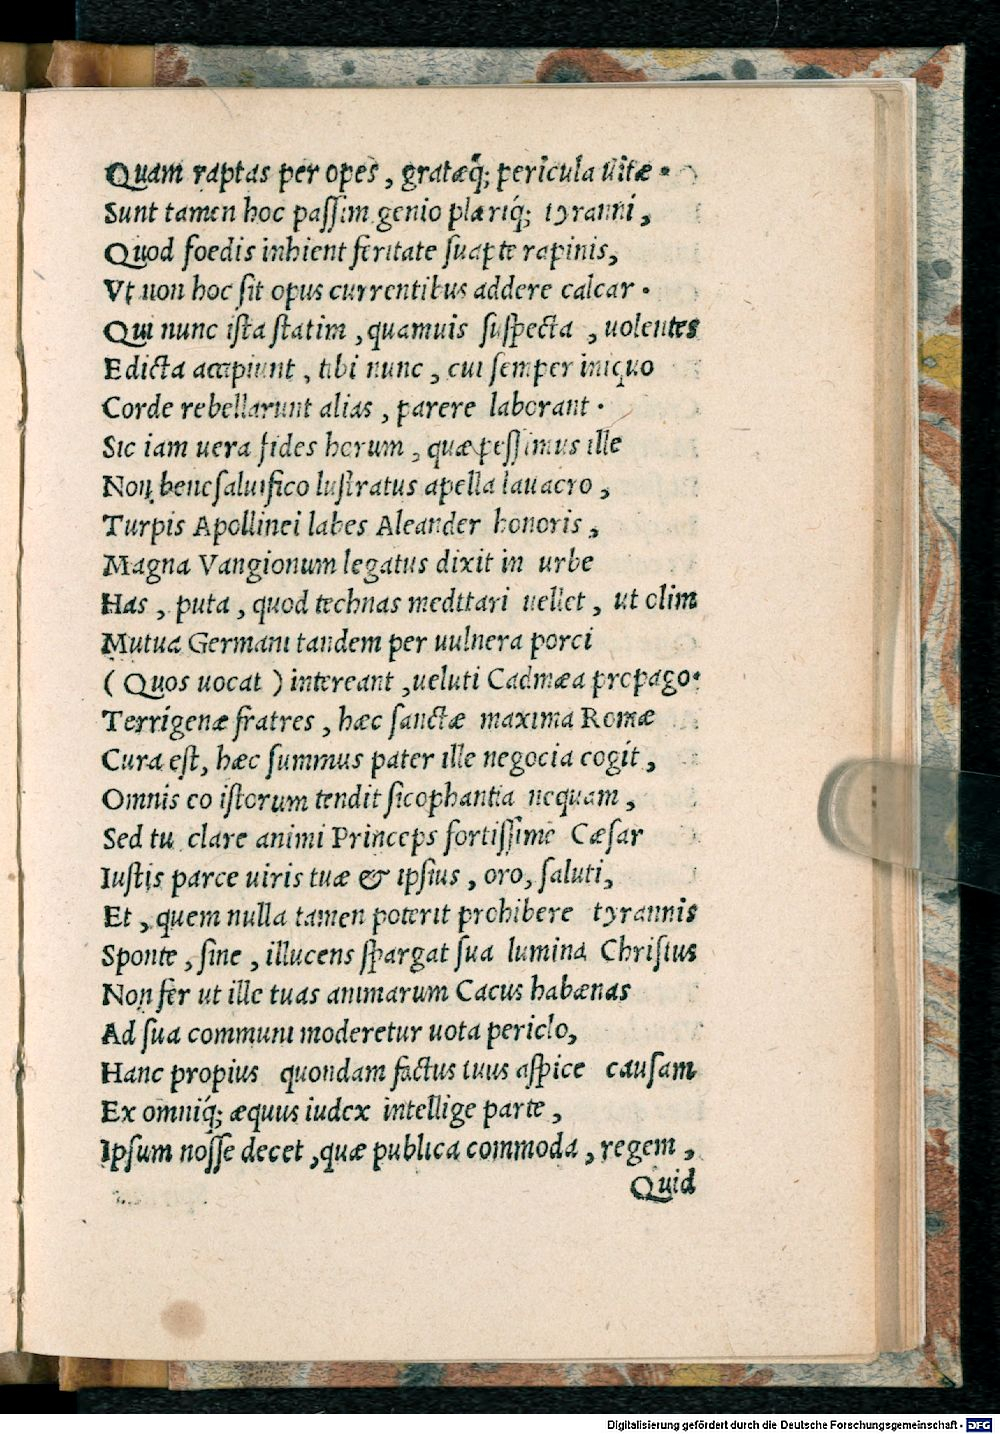 Quam raptas per opes, gratæq́; pericula uitæ.
Sunt tamen hoc passim genio pleriq́; tyranni,
Quod foedis inhient feritate suapte rapinis,
Vt non hoc sit opus currentibus addere calcar.
Qui nunc ista statim, quamuis suspecta, uolentes
Edicta accipiunt, tibi nunc, cui semper iniquo
Corde rebellarunt alias, parere laborant.
Sic iam uera fides horum, quæ pessimus ille
Non bene saluifico lustratus apella lauacro,
Turpis Apollinei labes Aleander honoris,
Magna Vangionum legatus dixit in urbe
Has, puta, quod technas meditari uellet, ut olim
Mutua Germani tandem per uulnera porci
(Quos uocat) intereant, ueluti Cadmæa propago.
Terrigenæ fratres, hæc sanctæ maxima Romæ
Cura est, hæc summus pater ille negocia cogit,
Omnis eo istorum tendit sicophantia nequam,
Sed tu clare animi Princeps fortissime Cæsar
Iustis parce uiris tuæ & ipsius, oro, saluti,
Et, quem nulla tamen poterit prohibere tyrannis
Sponte, sine, illucens spargat sua lumina Christus
Non fer ut ille tuas animarum Cacus habænas
Ad sua communi moderetur uota periclo,
Hanc propius quondam factus tuus aspice causam
Ex omniq́; æquus iudex intellige parte,
Ipsum nosse decet, quæ publica commoda, regem,
Quid
Digitalisierung gefördert durch die Deutsche Forschungsgemeinschaft - DFG